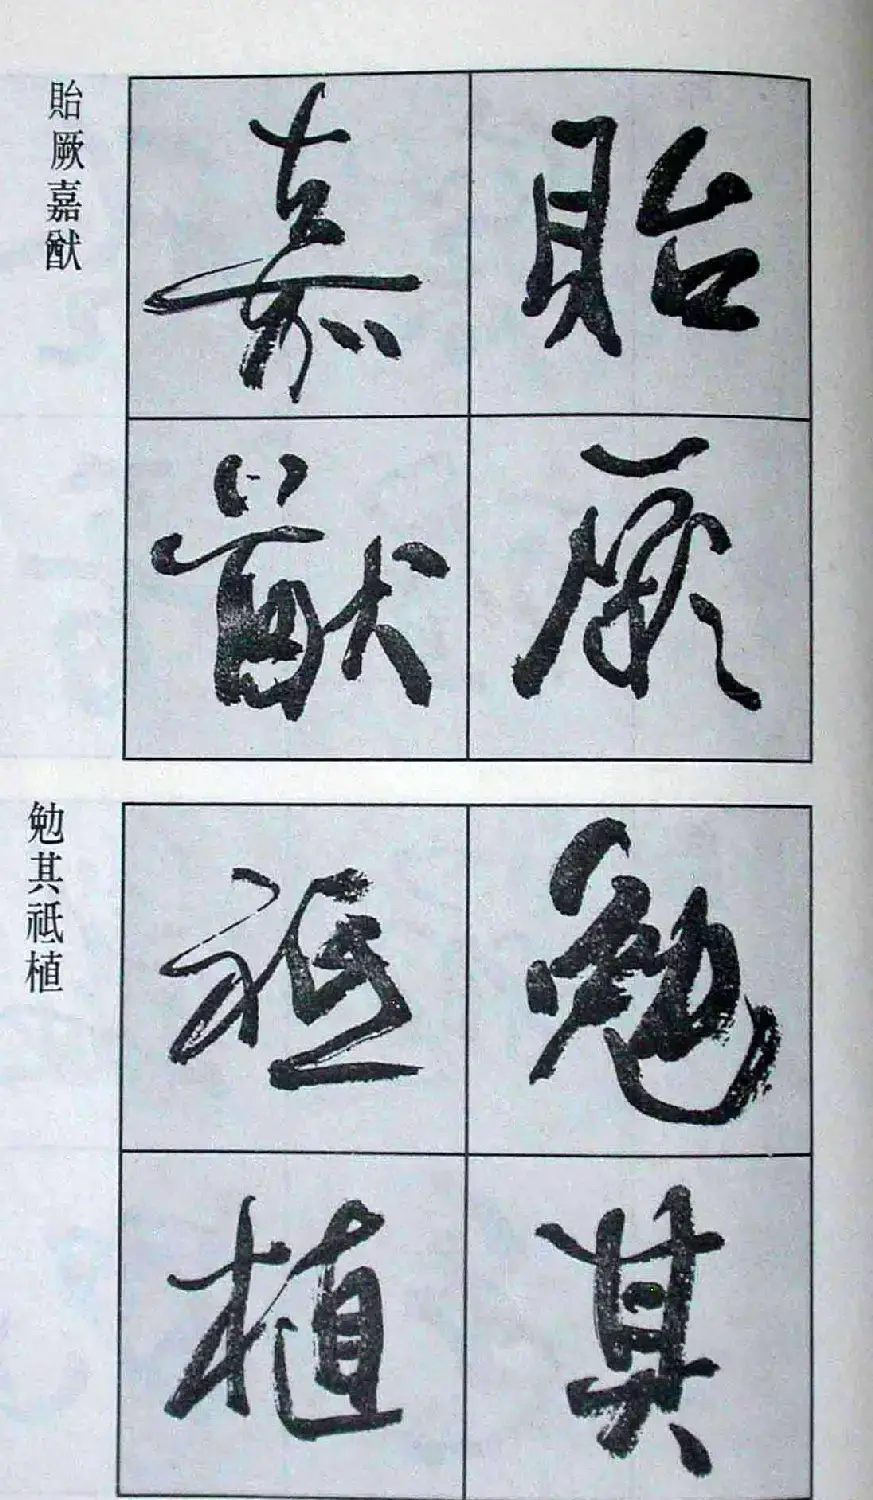 貽厥
嘉猷
貽厥嘉猷
勉其
祗植
勉其祗植